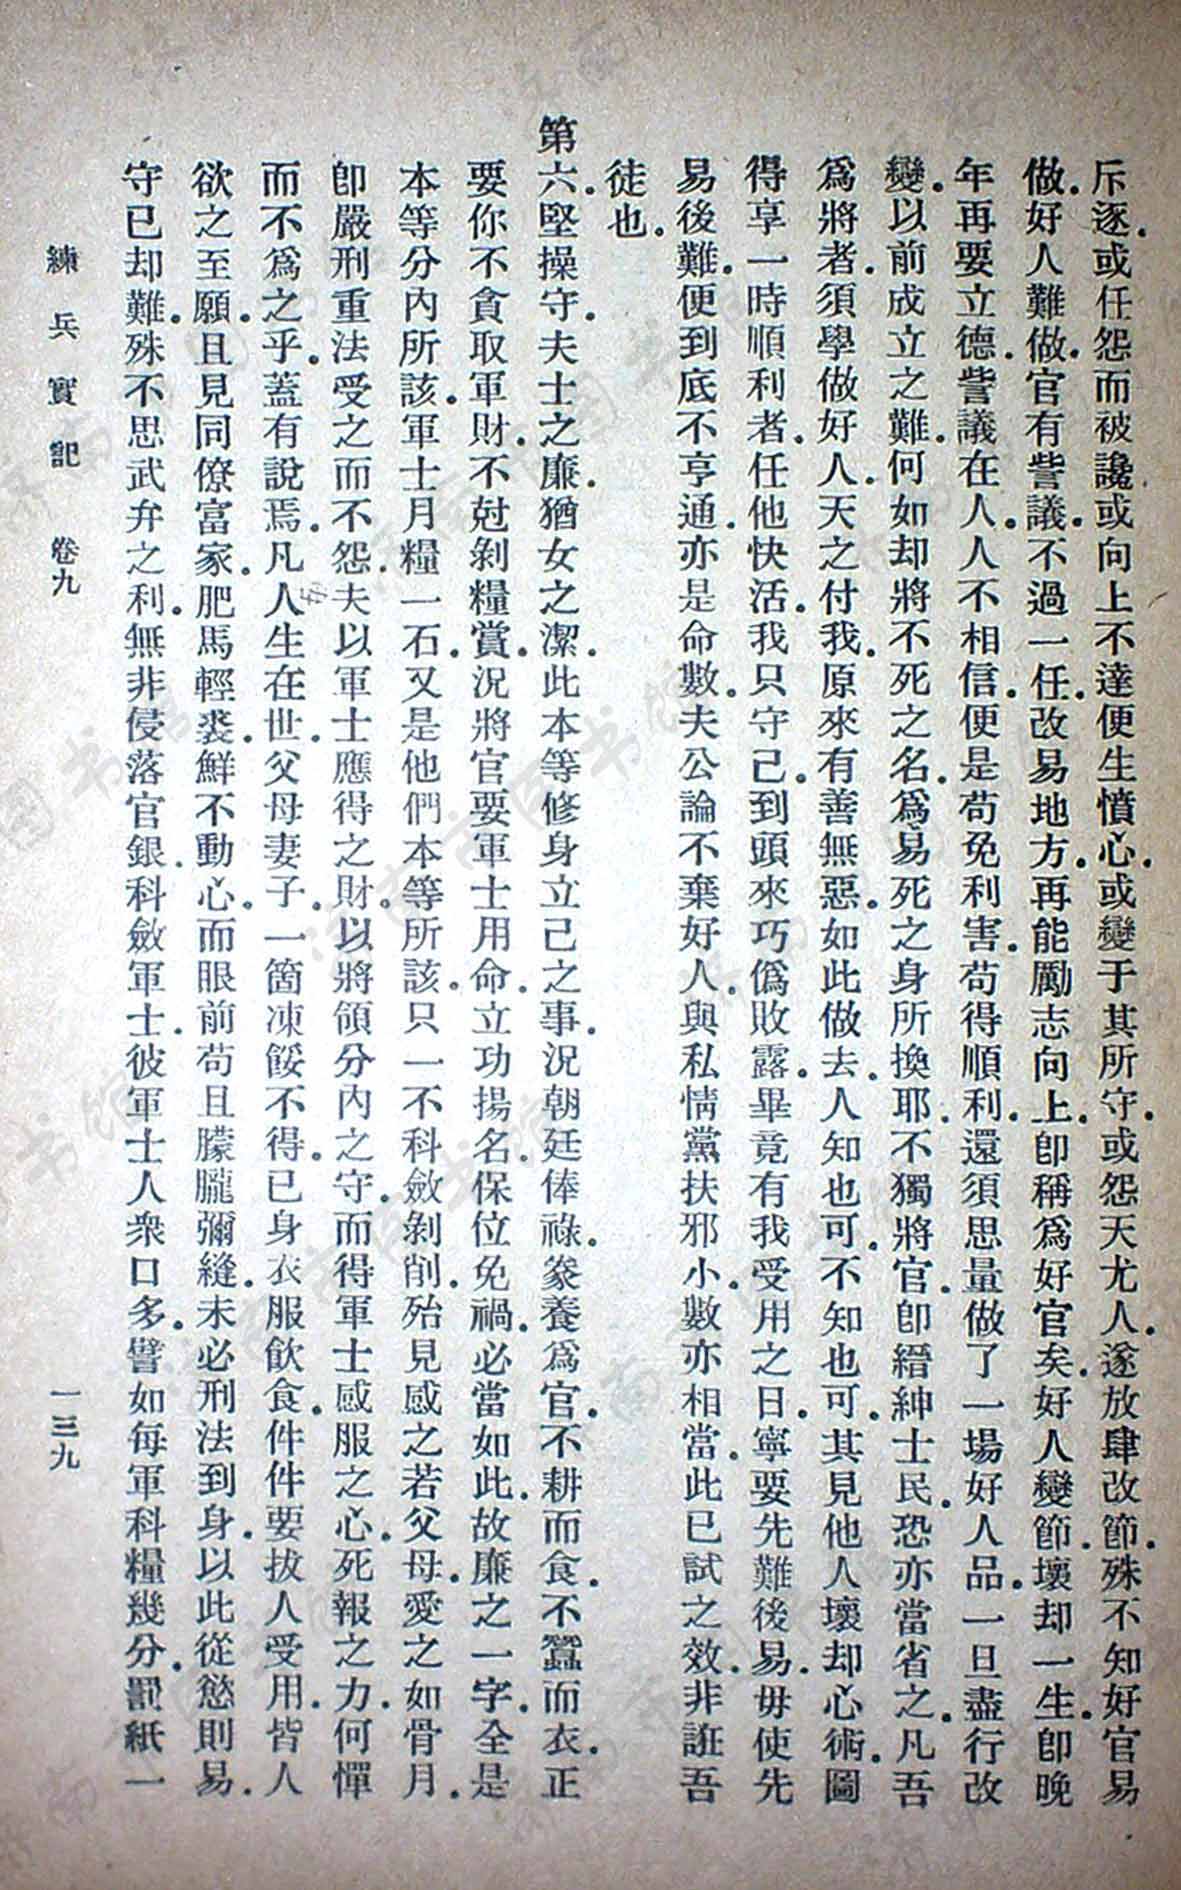 斥逐。或任怨而被讒或向上不達便生憤心。或變于其所守。或怨天尤人。遂放肆改節。殊不知好官易
做。好人難做。官有訾議。不過一任。改易地方。再能勵志向上。卽稱爲好官矣。好人變節。壞却一生。卽晚
年再要立德。訾議在人。人不相信。便是苟免利害。苟得順利。還須思量做了一場好人品。一旦盡行改
變。以前成立之難。何如却將不死之名。爲易死之身所換耶。不獨將官。卽縉紳士民。恐亦當省之。凡吾
爲將者。須學做好人。天之付我。原來有善無惡。如此做去。人知也可。不知也可。其見他人壞却心術。圖
得享一時順利者。任他快活。我只守己。到頭來巧僞敗露。畢竟有我受用之日。寧要先難後易。毋使先
易後難。便到底不亨通。亦是命數。夫公論不棄好人。與私情黨扶邪小。數亦相當。此已試之效。非誑吾
徒也。
第六。堅操守。夫士之廉。猶女之潔。此本等修身立己之事。況朝廷俸祿。豢養爲官。不耕而食。不蠶而衣。正
要你不貪取軍財。不尅剝糧賞。況將官要軍士用命。立功揚名。保位免禍。必當如此。故廉之一字。全是
本等分內所該。軍士月糧一石。又是他們本等所該。只一不科斂剝削。殆見感之若父母。愛之如骨月。
卽嚴刑重法。受之而不怨。夫以軍士應得之財。以將領分內之守。而得軍士感服之心。死報之力。何憚
而不爲之乎。蓋有說焉。凡人生在世。父母妻子。一箇凍餒不得。已身衣服飲食。件件要拔人受用。皆人
欲之至願。且見同僚富家。肥馬輕裘。鮮不動心。而眼前苟且朦朧彌縫。未必刑法到身。以此從慾則易。
守已却難。殊不思武弁之利。無非侵落官銀。科斂軍士。彼軍士人衆口多。譬如每軍科糧幾分。罰紙一
練兵實記 卷九 一三九